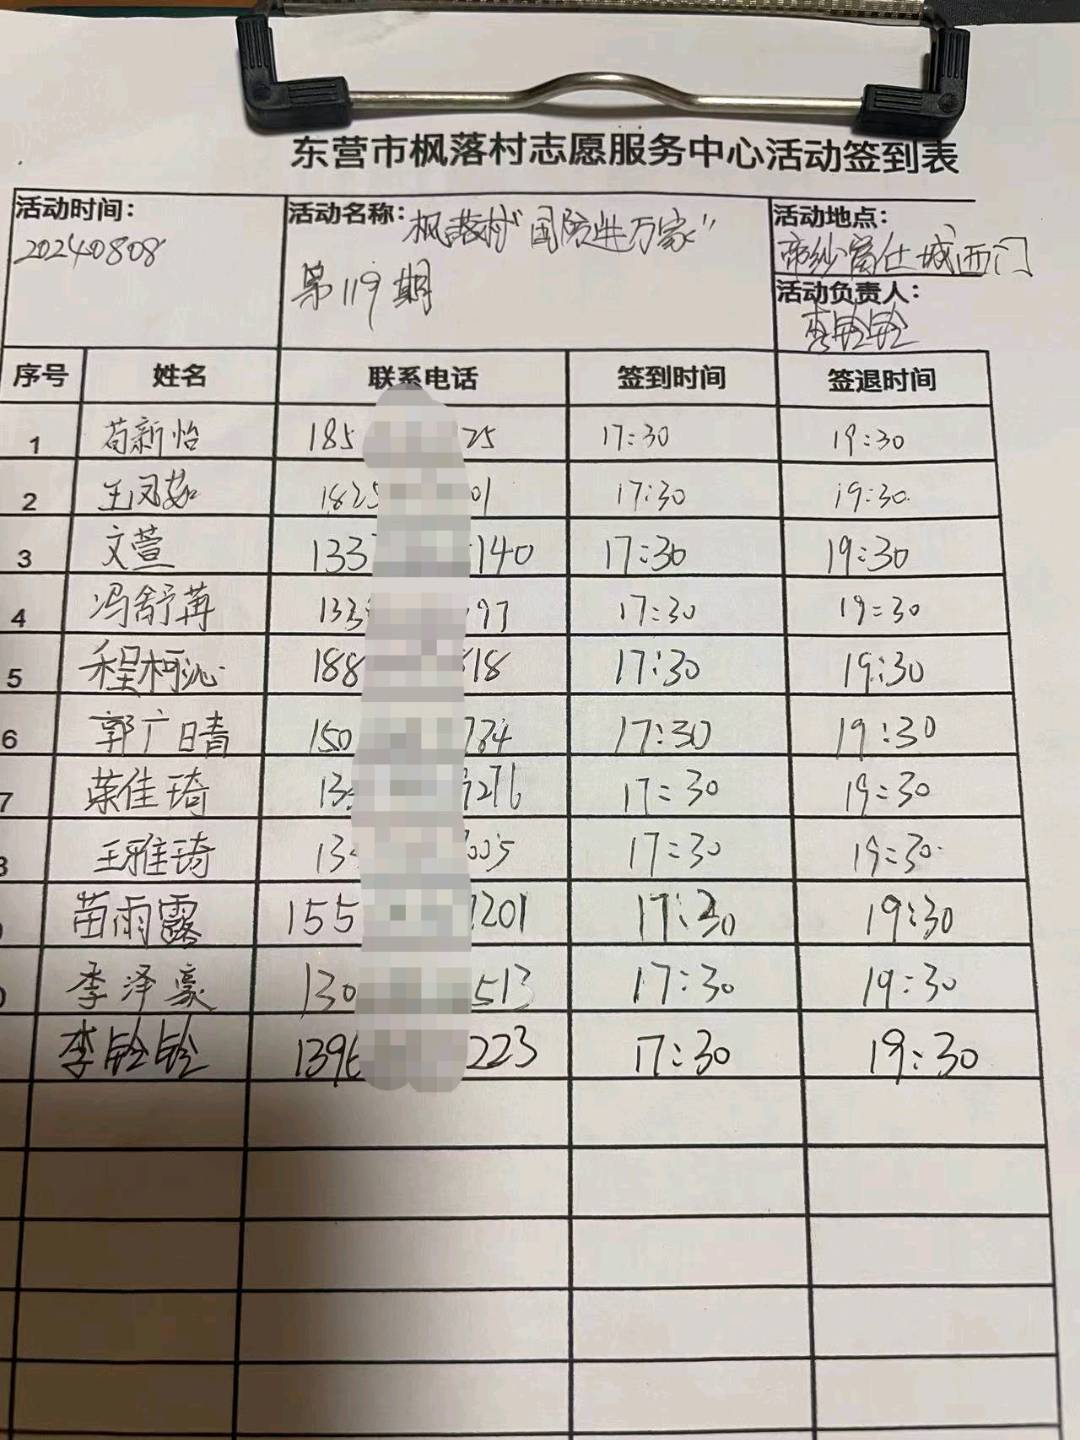 东营市枫落村志愿服务中心活动签到表
活动时间: 活动名称: 枫落村"国防进万家" 活动地点:
20240808 第119期 西门
活动负责人:
李铃铃
序号 姓名 联系电话 签到时间 签退时间
1 苟新怡 185 25 17:30 19:30
2 王凤茹 1825 01 17:30 19:30
3 文萱 133 140 17:30 19:30
4 冯舒苒 133 97 17:30 19:30
5 程柯沁 188 818 17:30 19:30
6 郭广晴 150 784 17:30 19:30
7 荣佳琦 13 276 17:30 19:30
王雅琦 13 005 17:30 19:30
苗雨露 155 201 17:30 19:30
李泽豪 130 513 17:30 19:30
李铃铃 1396 223 17:30 19:30